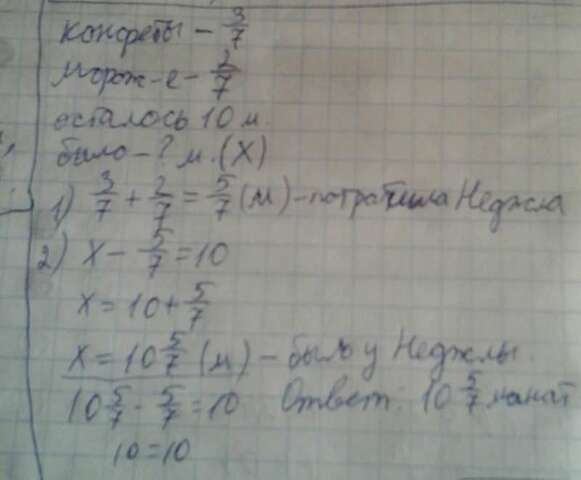 конфеты - 3/7
морож-е - 2/7
осталось 10 м.
было - ? м. (X)
1) 3/7 + 2/7 = 5/7 (м) - потратила Неджла
2) X - 5/7 = 10
X = 10 + 5/7
X = 10 5/7 (м) - было у Неджлы.
10 5/7 - 5/7 = 10 Ответ: 10 5/7 манат
10 = 10